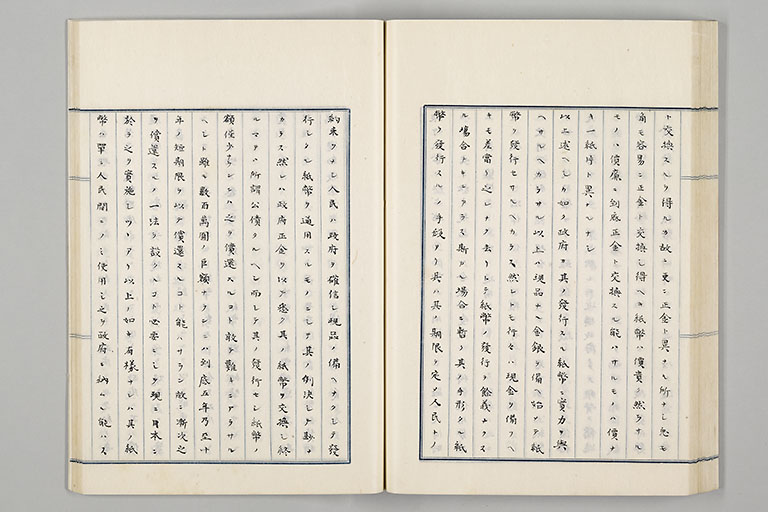 ト交換スルヲ得ルカ故ニ更ニ正金ト異ナル所ナシ已モ
尚モ容易ニ正金ト交換シ得ヘキ紙幣ハ價貴ク然ラサル
モノハ價廉ニ到底正金ト交換スル能ハサルモノハ價ナ
キ一紙片ト異ナルナシ
以上述ヘシカ如ク政府ヲ其ノ發行スル紙幣ニ實力ヲ與
ヘサルヘカラサル以上ハ現品ナル金銀ヲ備ヘ始メテ紙
幣ヲ發行セサルヘカラス然レトモ行々ハ現金ヲ備フヘ
キモ差當リ之レナク去リトテ紙幣ノ發行ヲ餘義ムクス
ル場合トキニアラス斯カル場合ニ暫ク其ノ手形タル紙
幣ヲ發行スルノ手段アリ具ハ其ノ期限ヲ定メ人民トノ
約束ヲナシ人民ハ政府ヲ確信シ現品ノ備ヘナクシテ發
行シタル紙幣ヲ通用スルモノニシテ其ノ例決シテ尠ナ
カラス然レハ政府正金ヲ以テ悉ク其ノ紙幣ヲ交換シ終
ルマテハ所謂公債タルヘシ而シテ其ノ發行セシ紙幣ノ
額僅少ナランニハ之ヲ償還スルコト敢テ難キニアラサル
ヘシト雖モ數百萬圓ノ巨額ナランニハ到底五年乃至十
年ノ短期限ヲ以テ償還スルコト能ハサラン故ニ漸次之
ヲ償還スルノ一法ヲ設クルコト必要ニシテ現ニ日本ニ
於テ之ヲ實施シツヽアリ以上ノ如キ有樣ナレハ其ノ紙
幣ハ單ニ人民間ニノミ使用シ之ヲ政府ニ納ムル能ハス